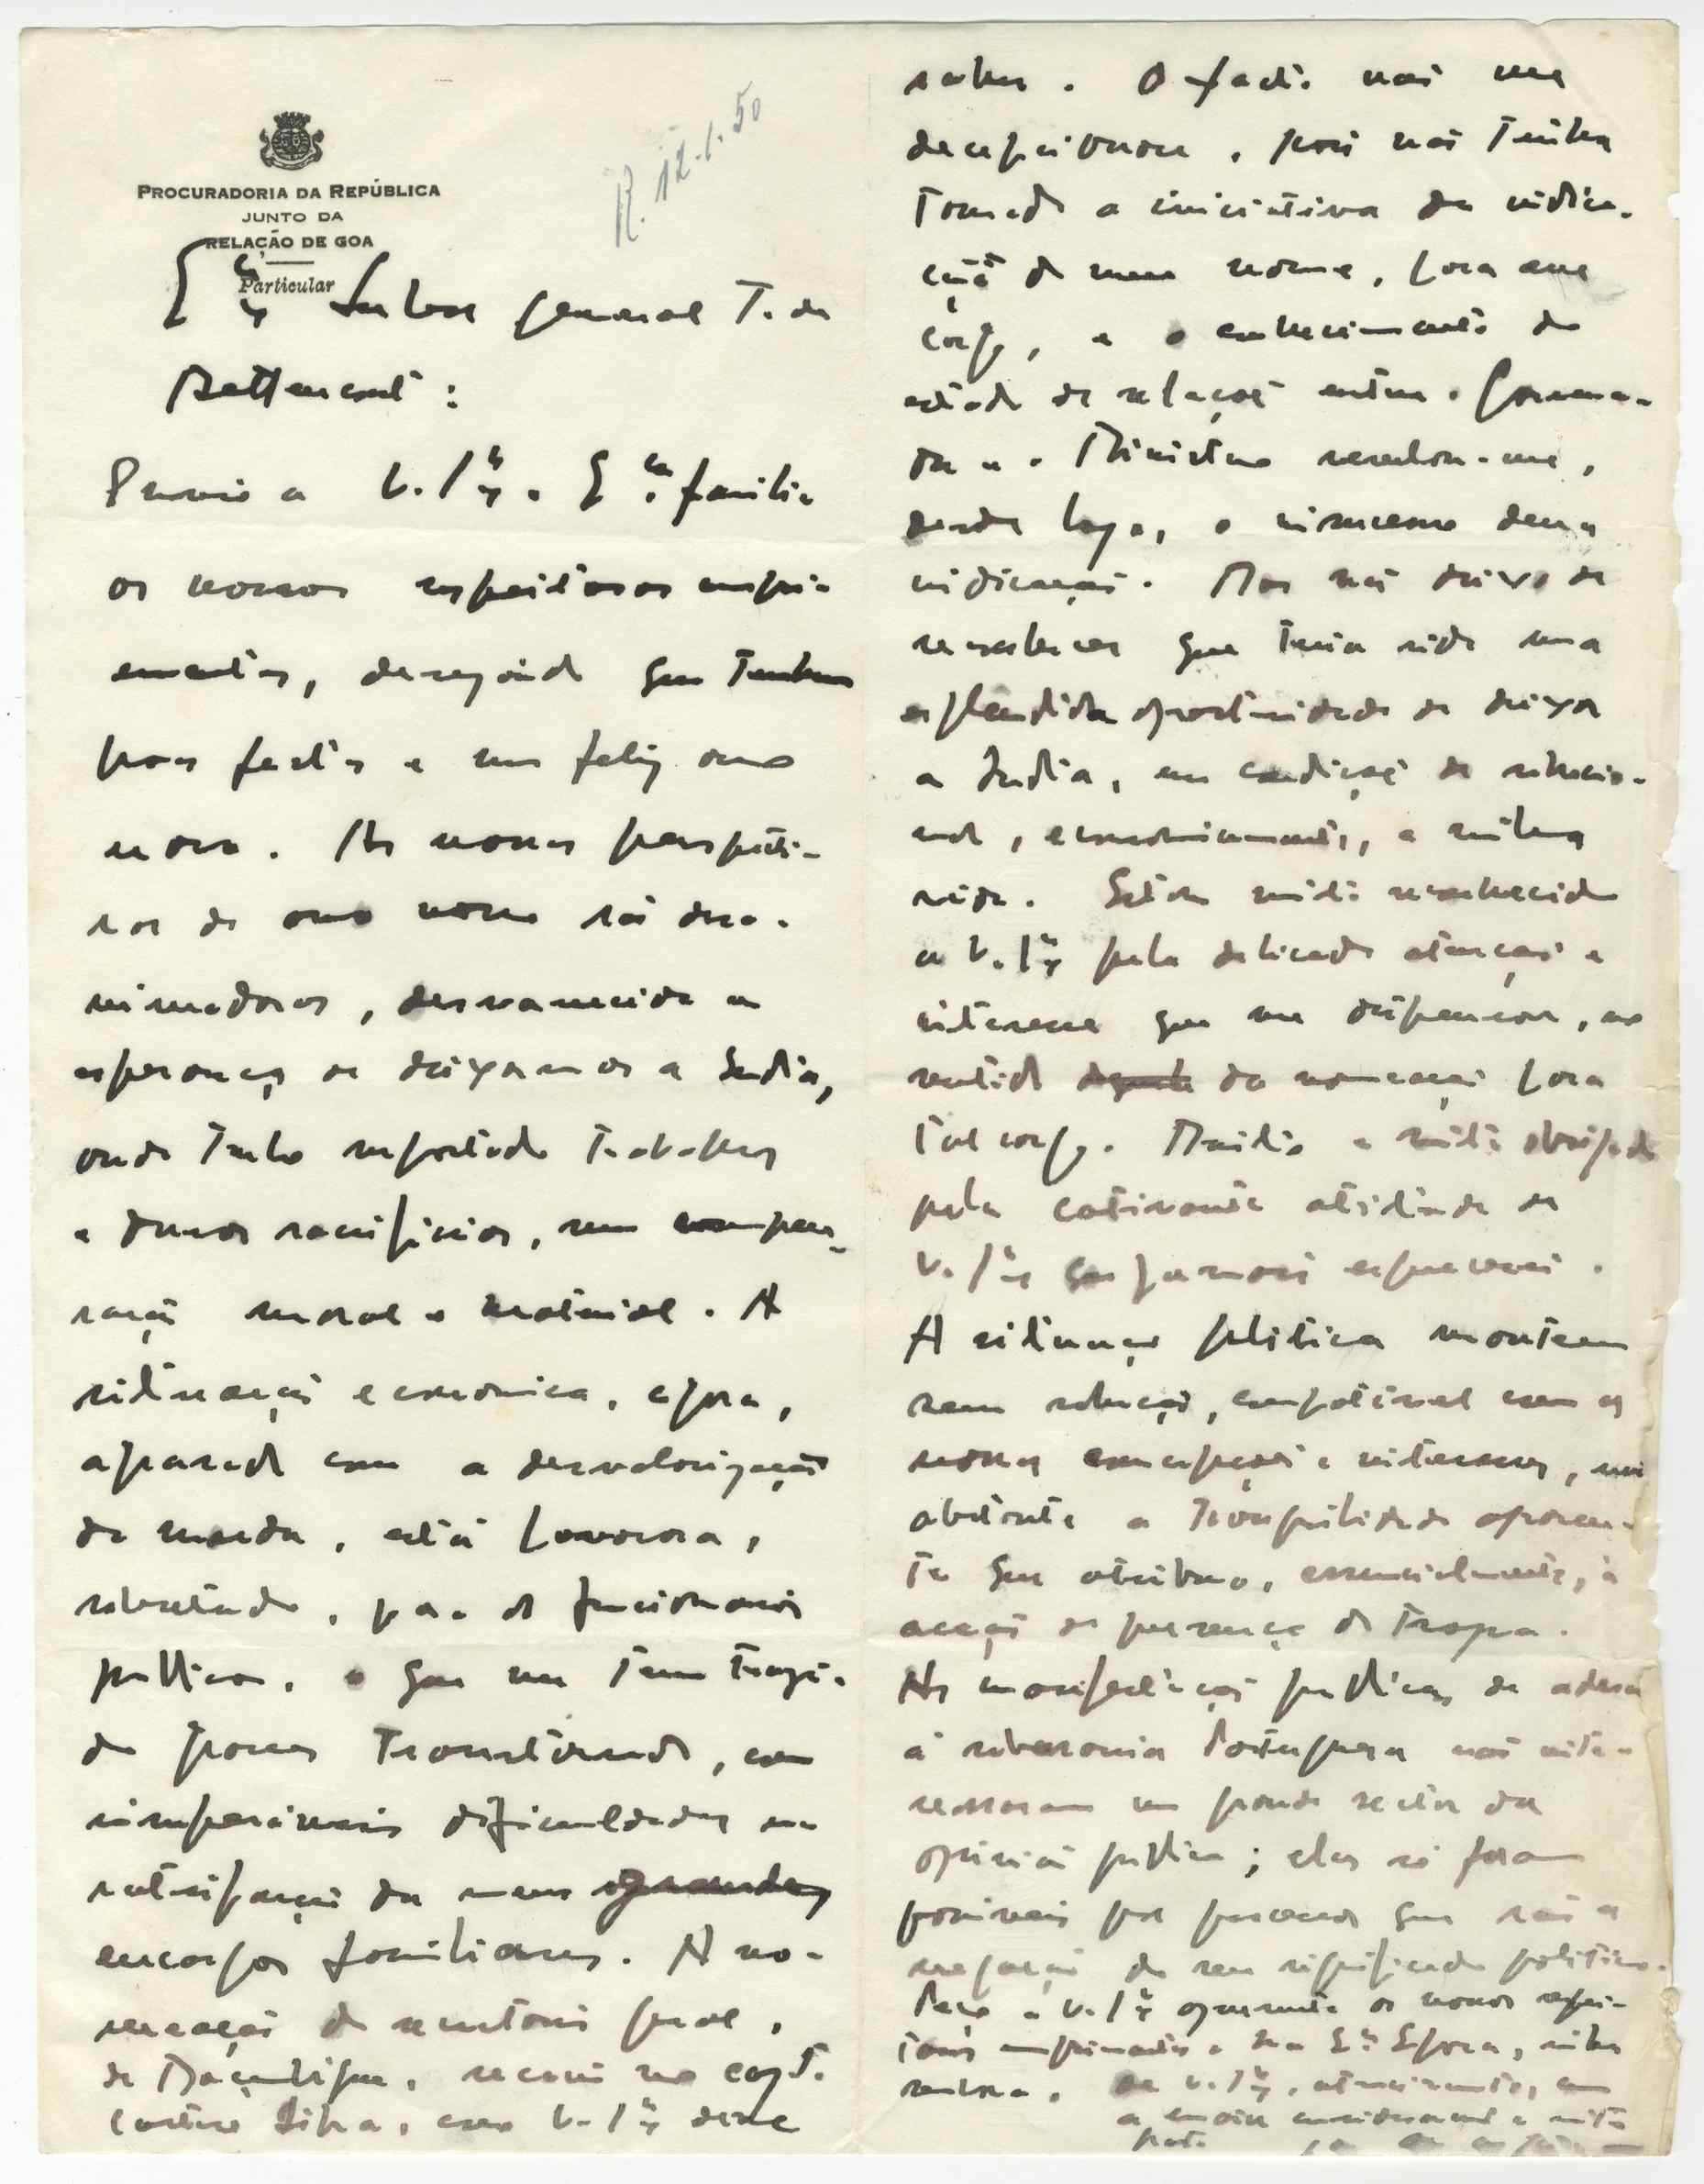 PROCURADORIA DA REPÚBLICA
JUNTO DA
RELAÇÃO DE GOA
Particular
R. 12-1-50
Exmo Senhor General T. de
Bettencourt:
Envio a V. Exª e Exma familia
os nossos respeitosos cumpri-
mentos, desejando que tenham
boas festas e um feliz ano
novo. As nossas perspecti-
vas do ano novo são desa-
nimadoras, desvanecida a
esperança de deixarmos a India,
onde tenho suportado trabalhos
e duros sacrificios, sem compen-
sação moral e material. A
situação economica, agora,
agravada com a desvalorização
da moeda, está pavorosa,
sobretudo, para os funcionarios
publicos, o que me tem trazi-
do graves transtornos, com
insuperaveis dificuldades na
satisfação dos meus grandes
encargos familiares. A no-
meação do secretario geral,
de Moçambique, recaiu no Capt.
Silva, como V. Exª deve
saber. O facto não me
decepcionou, pois não tinha
tomado a iniciativa da indica-
ção do meu nome, para esse
cargo, e o conhecimento do
estado de relações entre o Governa-
dor e o Ministro revelou-me,
desde logo, o insucesso dessa
indicação. Mas não deixo de
reconhecer que teria sido uma
esplendida oportunidade de deixar
a India, em condições de solucio-
nar, economicamente, a minha
vida. Estou muito reconhecido
a V. Exª pela delicada atenção e
interesse que me dispensou, no
sentido da nomeação para
tal cargo. Muito e muito obrigado
pela cativante atitude de
V. Exª que jamais esquecerei.
A situação politica mantem
sem solução, compativel com as
nossas concepções e interesses, não
obstante a tranquilidade aparen-
te que atribuo, essencialmente, à
acção de presença da tropa.
As manifestações publicas de adesão
à soberania Portuguesa não inte-
ressaram um grande sector da
opinião publica; elas só foram
possiveis por processos que são a
negação do seu significado politico.
Peço a V. Exª apresente os nossos respei-
tosos cumprimentos a sua Exma Esposa, minha
senhora. De V. Exª, atenciosamente, com
a maior consideração e muito
grato